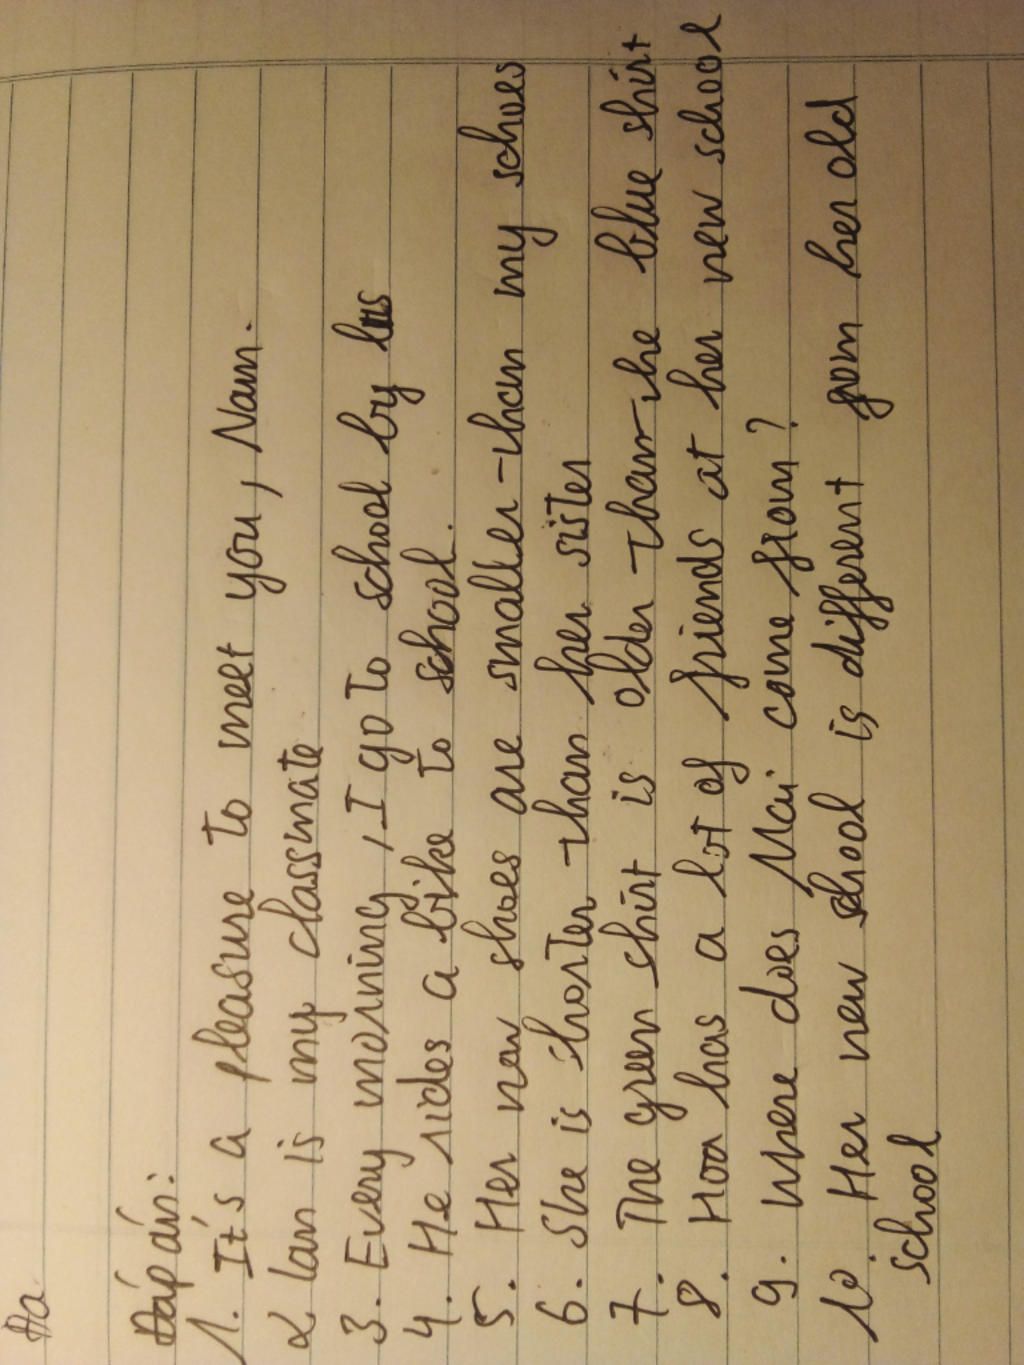 Đa
Đáp án:
1. It's a pleasure to meet you, Nam.
2 Lan is my classmate
3. Every morning, I go to school by bus
4. He rides a bike to school.
5. Her new shoes are smaller than my schoes
6. She is shorter than her sister
7. The green shirt is older than the blue shirt
8. Hoa has a lot of friends at her new school
9. Where does Mai come from?
10. Her new school is different from her old
school